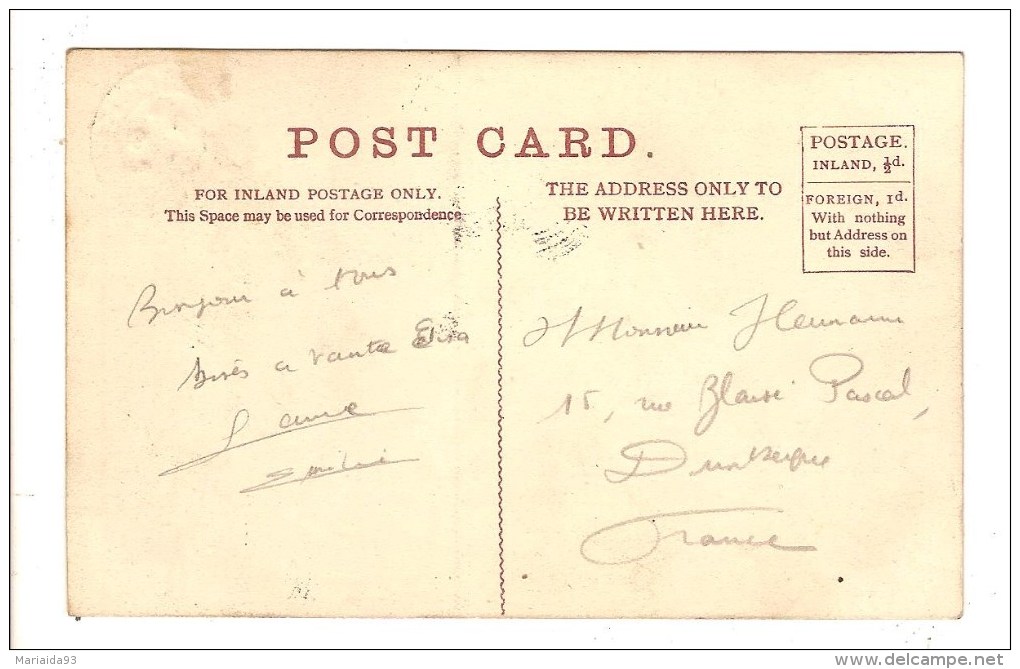 POST CARD.
FOR INLAND POSTAGE ONLY.
This Space may be used for Correspondence
THE ADDRESS ONLY TO
BE WRITTEN HERE.
POSTAGE.
INLAND, ½d.
FOREIGN, 1d.
With nothing
but Address on
this side.
Bonjour à tous
à tante
Monsieur
15, rue Blaise Pascal,
Dunkerque
France
Mariaida93
www.delcampe.net